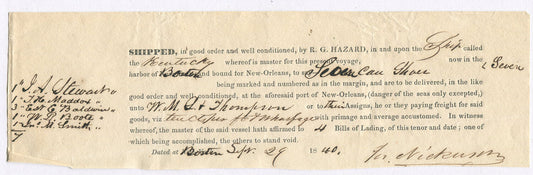 SHIPPED, in good order and well conditioned, by R. G. HAZARD, in and upon the Ship called
the Kentucky whereof is master for this present voyage, now in the
harbor of Boston and bound for New-Orleans, to Seven Seven
being marked and numbered as in the margin, and are to be delivered, in the like
good order and well conditioned, at the aforesaid port of New-Orleans, (danger of the seas only excepted,)
unto W. M. L. & Thompson or to their Assigns, he or they paying freight for said
goods, via with primage and average accustomed. In witness
whereof, the master of the said vessel hath affirmed to 4 Bills of Lading, of this tenor and date; one of
which being accomplished, the others to stand void.
Dated at Boston Sept. 29 1840.
Nickerson
1 " J. A. Stewart "
1 " Maddox "
3 " Baldwin "
1 " W. P. Boote "
1 " Smith "
7